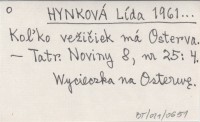 o
HYNKOVÁ Lída 1961...
Koľko vežičiek má Osterva.
– Tatr. Noviny 8, nr 25: 4.
Wycieczka na Osterwę.